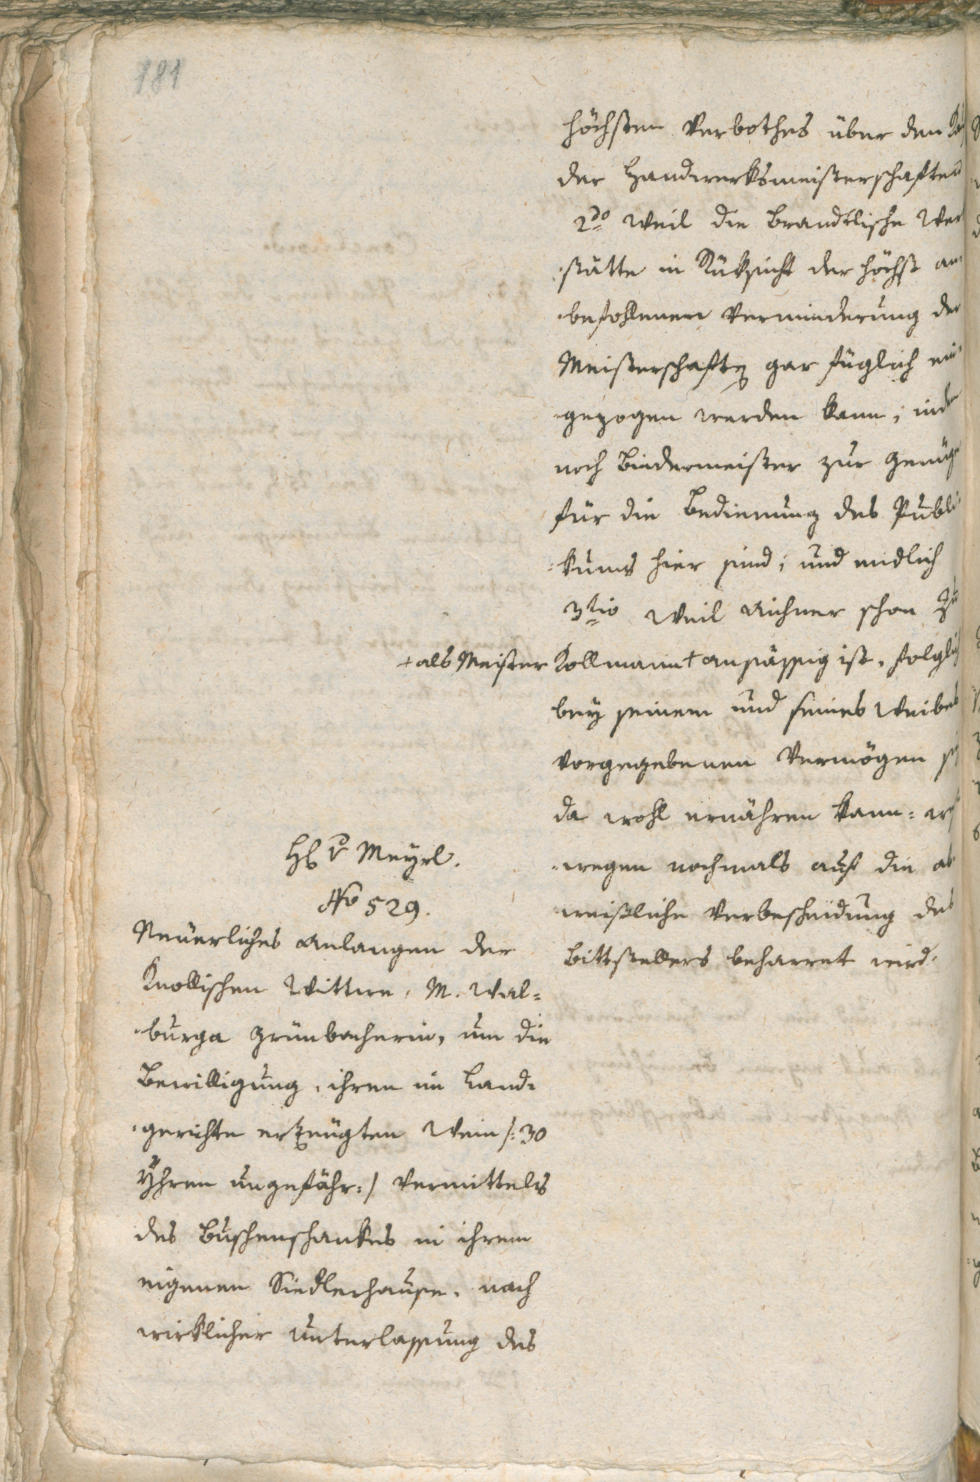 181
höchsten Verbothes über den
der Handwerksmeisterschaften
2do weil die Brandtlische Wer
stätte in Rüksicht der höchst an
befohlenen Verminderung der
Meisterschaften gar füglich ein
gezogen werden kann, inde
noch Bindermeister zur Genüge
für die Bedienung des Publi
kums hier sind; und endlich
3tio weil Aichner schon zu
Kollmann + ansässig ist, folglich
+ als Meister
bey seinem und seines Weibes
vorgegebenen Vermögen
da wohl ernähren kann: wes
wegen nochmals auf die ab
weisliche Verbescheidung des
Bittstellers beharret wird.
H v Meyrl.
No 529.
Neüerliches Anlangen der
Knollischen Wittwe, M. Wal=
burga Grünbacherin, um die
Bewilligung, ihren im Land=
gerichte erzeügten Wein /: 30
Yhren ungefähr :/ vermittels
des Buschenschankes in ihrem
eigenen Siedlerhause, nach
wirklicher Unterlassung des